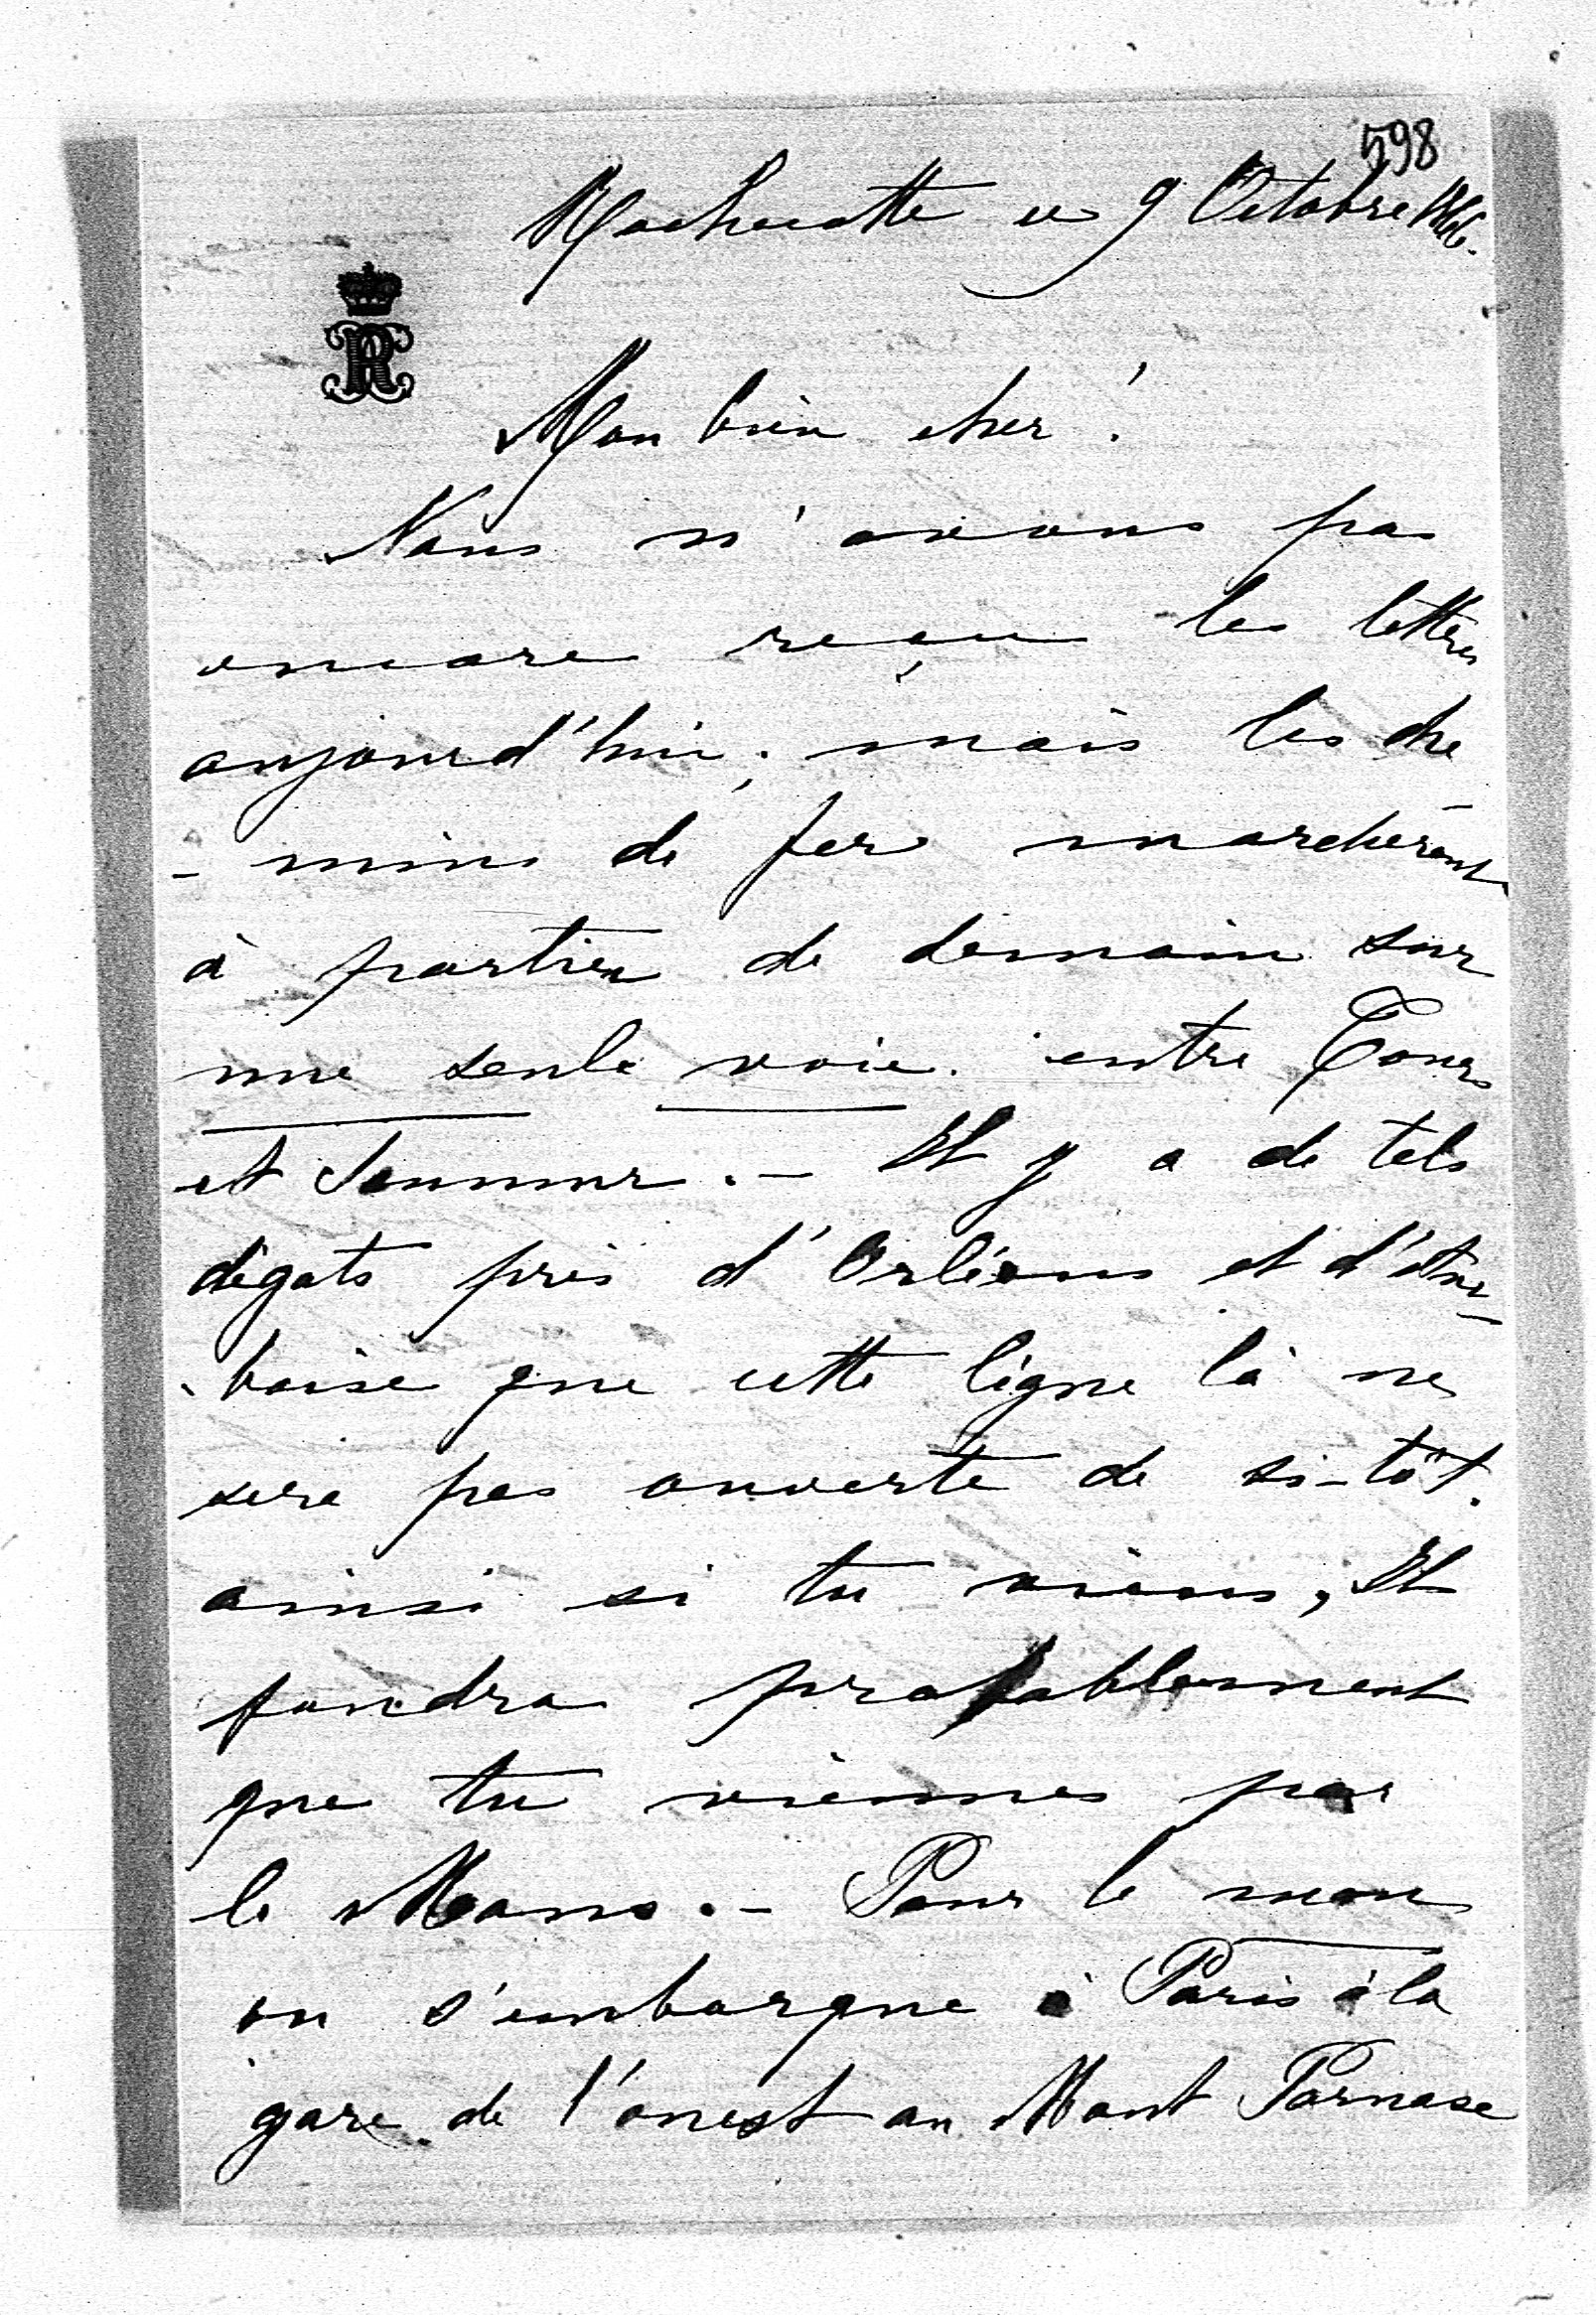 598
Rochecotte ce 9 Octobre 1866.
R
Mon bien cher!
Nous n'avons pas
encore reçu les lettres
aujourd'hui; mais les che
- mins de fer marcherònt
à partir de demain sur
une seule voie. entre Tours
et Saumur. - Il y a de tels
dégats près d'Orléans et d'Am-
-boise que cette ligne là ne
sera pas ouverte de si-tôt.
ainsi si tu viens, Il
faudra probablement
que tu viennes par
le Mans. - Pour le mans
on s'embarque à Paris à la
gare de l'ouest au Mont Parnase